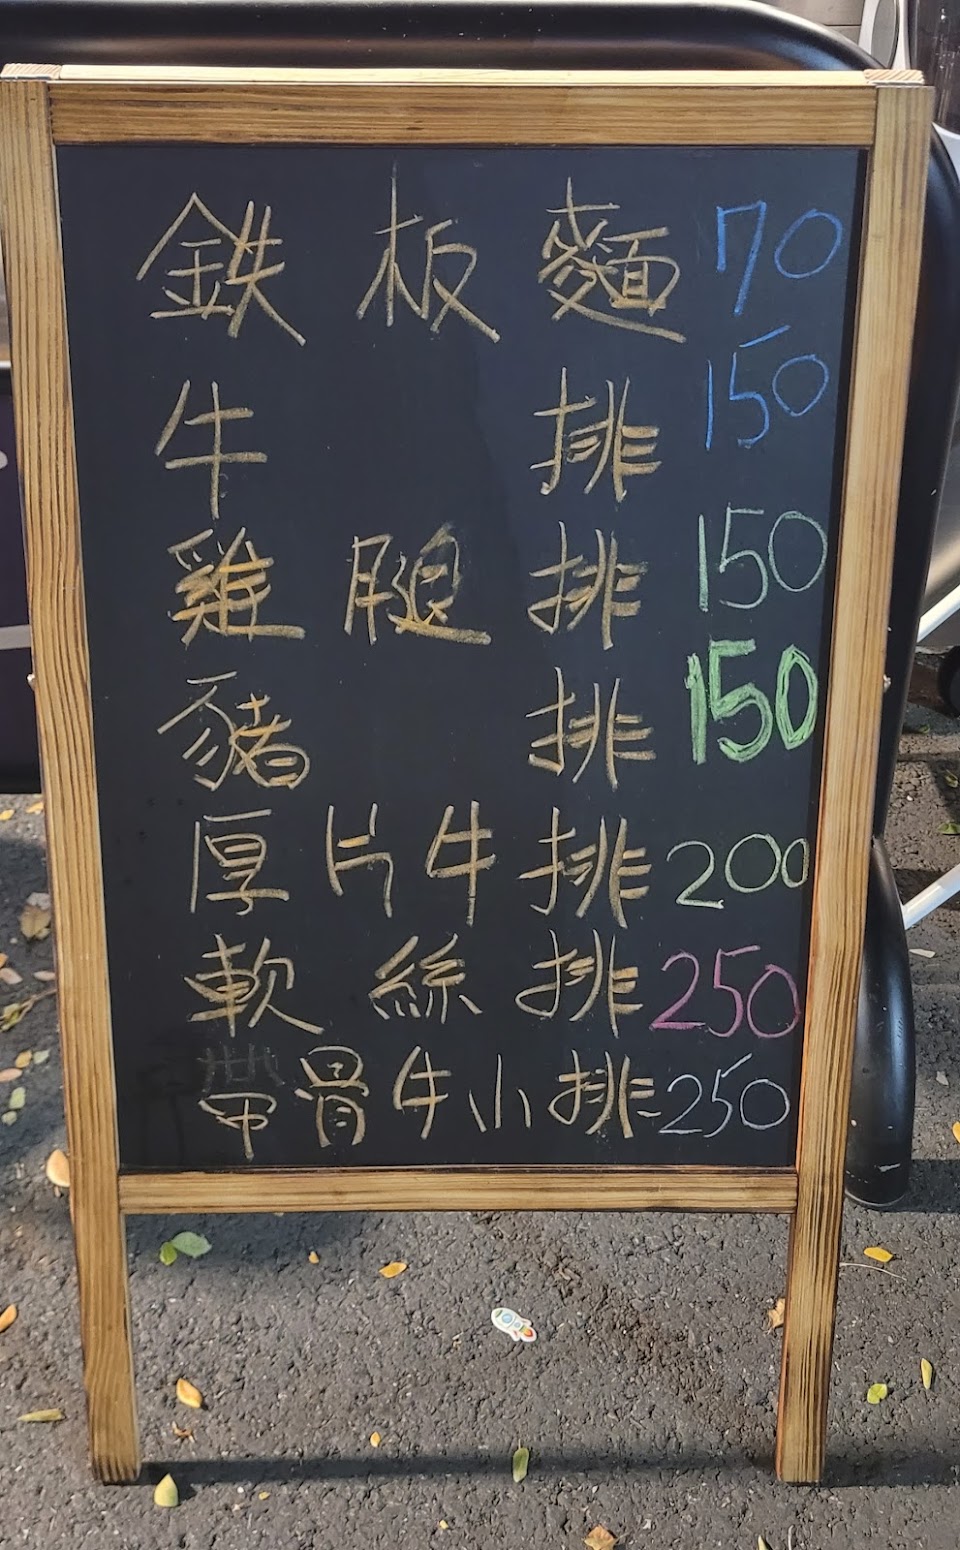 鉄板麵 70
牛排 150
雞腿排 150
豬排 150
厚片牛排 200
軟絲排 250
帶骨牛小排 250